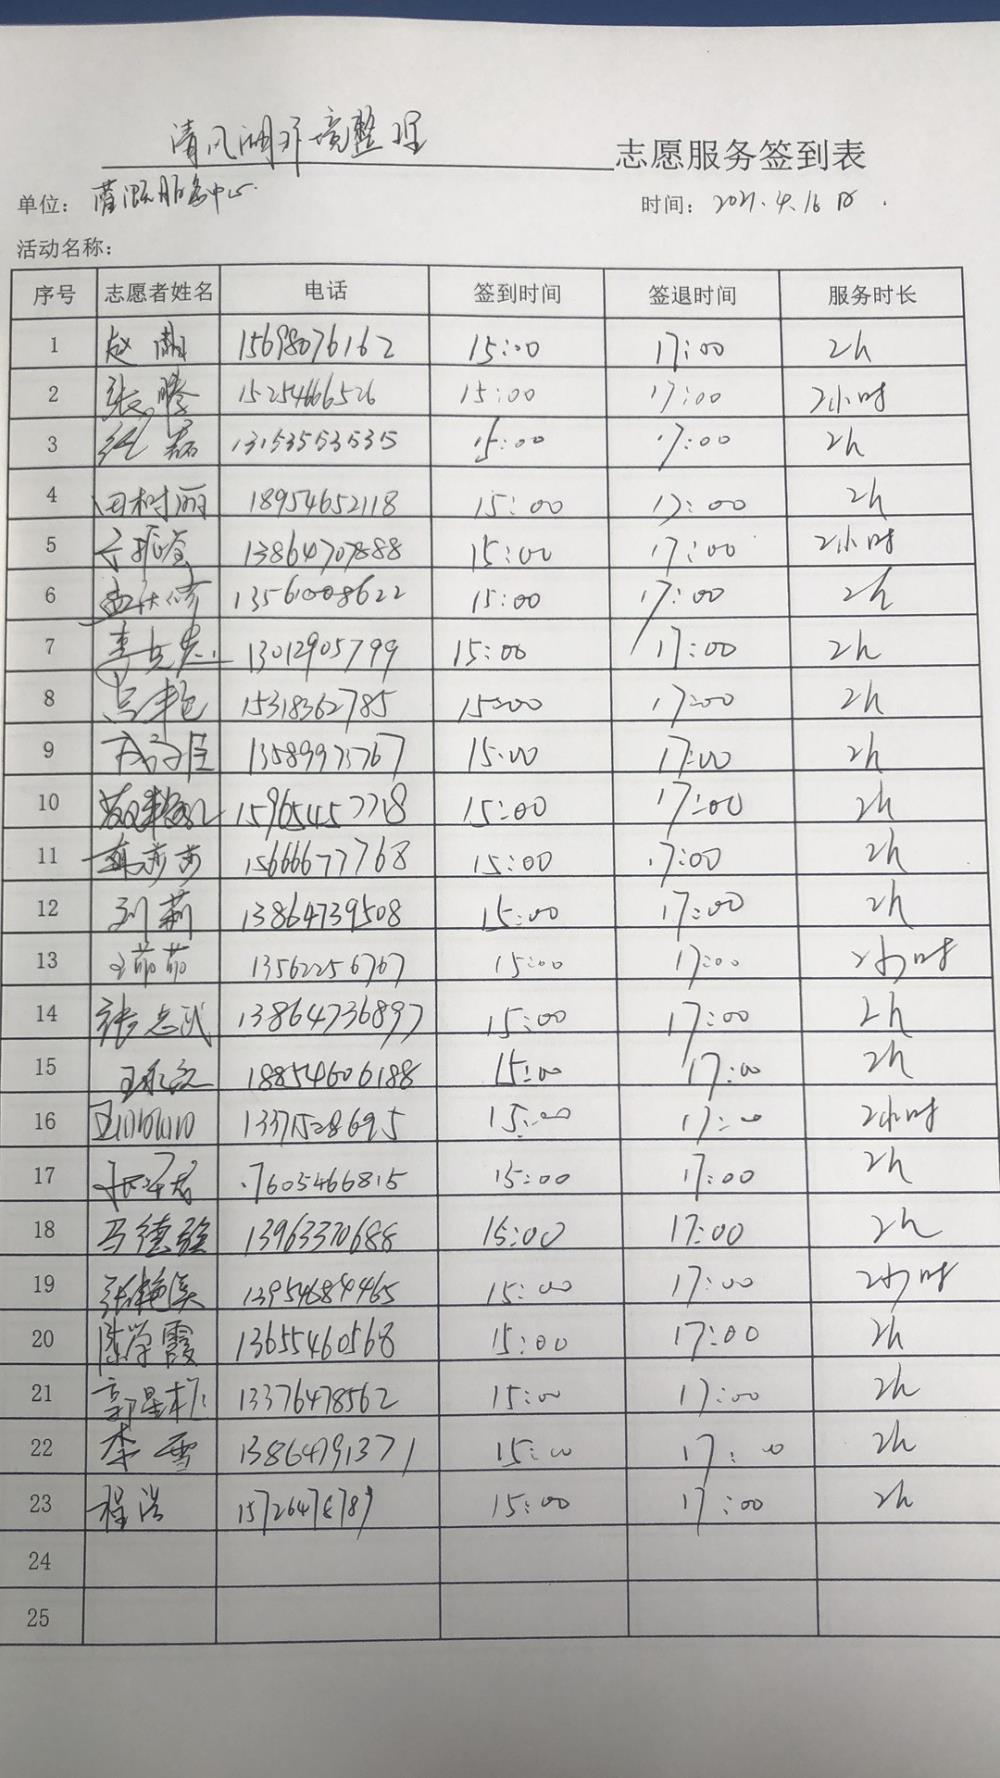 清风湖环境整理 志愿服务签到表
单位: 灌溉服务中心. 时间: 2021.4.16日.
活动名称:
序号 志愿者姓名 电话 签到时间 签退时间 服务时长
1 赵 15698076162 15:00 17:00 2h
2 张腾 15254666526 15:00 17:00 2小时
3 磊 13153553535 15:00 17:00 2h
4 田树丽 18954652118 15:00 17:00 2h
5 13864707888 15:00 17:00 2小时
6 13561008622 15:00 17:00 2h
7 李 13012905799 15:00 17:00 2h
8 15318362785 15:00 17:00 2h
9 15:00 17:00 2h
10 15965457728 15:00 17:00 2h
11 莎莎 15666677768 15:00 17:00 2h
12 刘莉 13864739508 15:00 17:00 2h
13 王茹茹 13562256767 15:00 17:00 2小时
14 张志武 13864736897 15:00 17:00 2h
15 王 18854606188 15:00 17:00 2h
16 13371528695 15:00 17:00 2小时
17 17605466815 15:00 17:00 2h
18 马德强 13963370688 15:00 17:00 2h
19 张艳溪 13954684465 15:00 17:00 2小时
20 陈学霞 13655460568 15:00 17:00 2h
21 郭星 13376478562 15:00 17:00 2h
22 李雪 13864791371 15:00 17:00 2h
23 程浩 15:00 17:00 2h
24
25